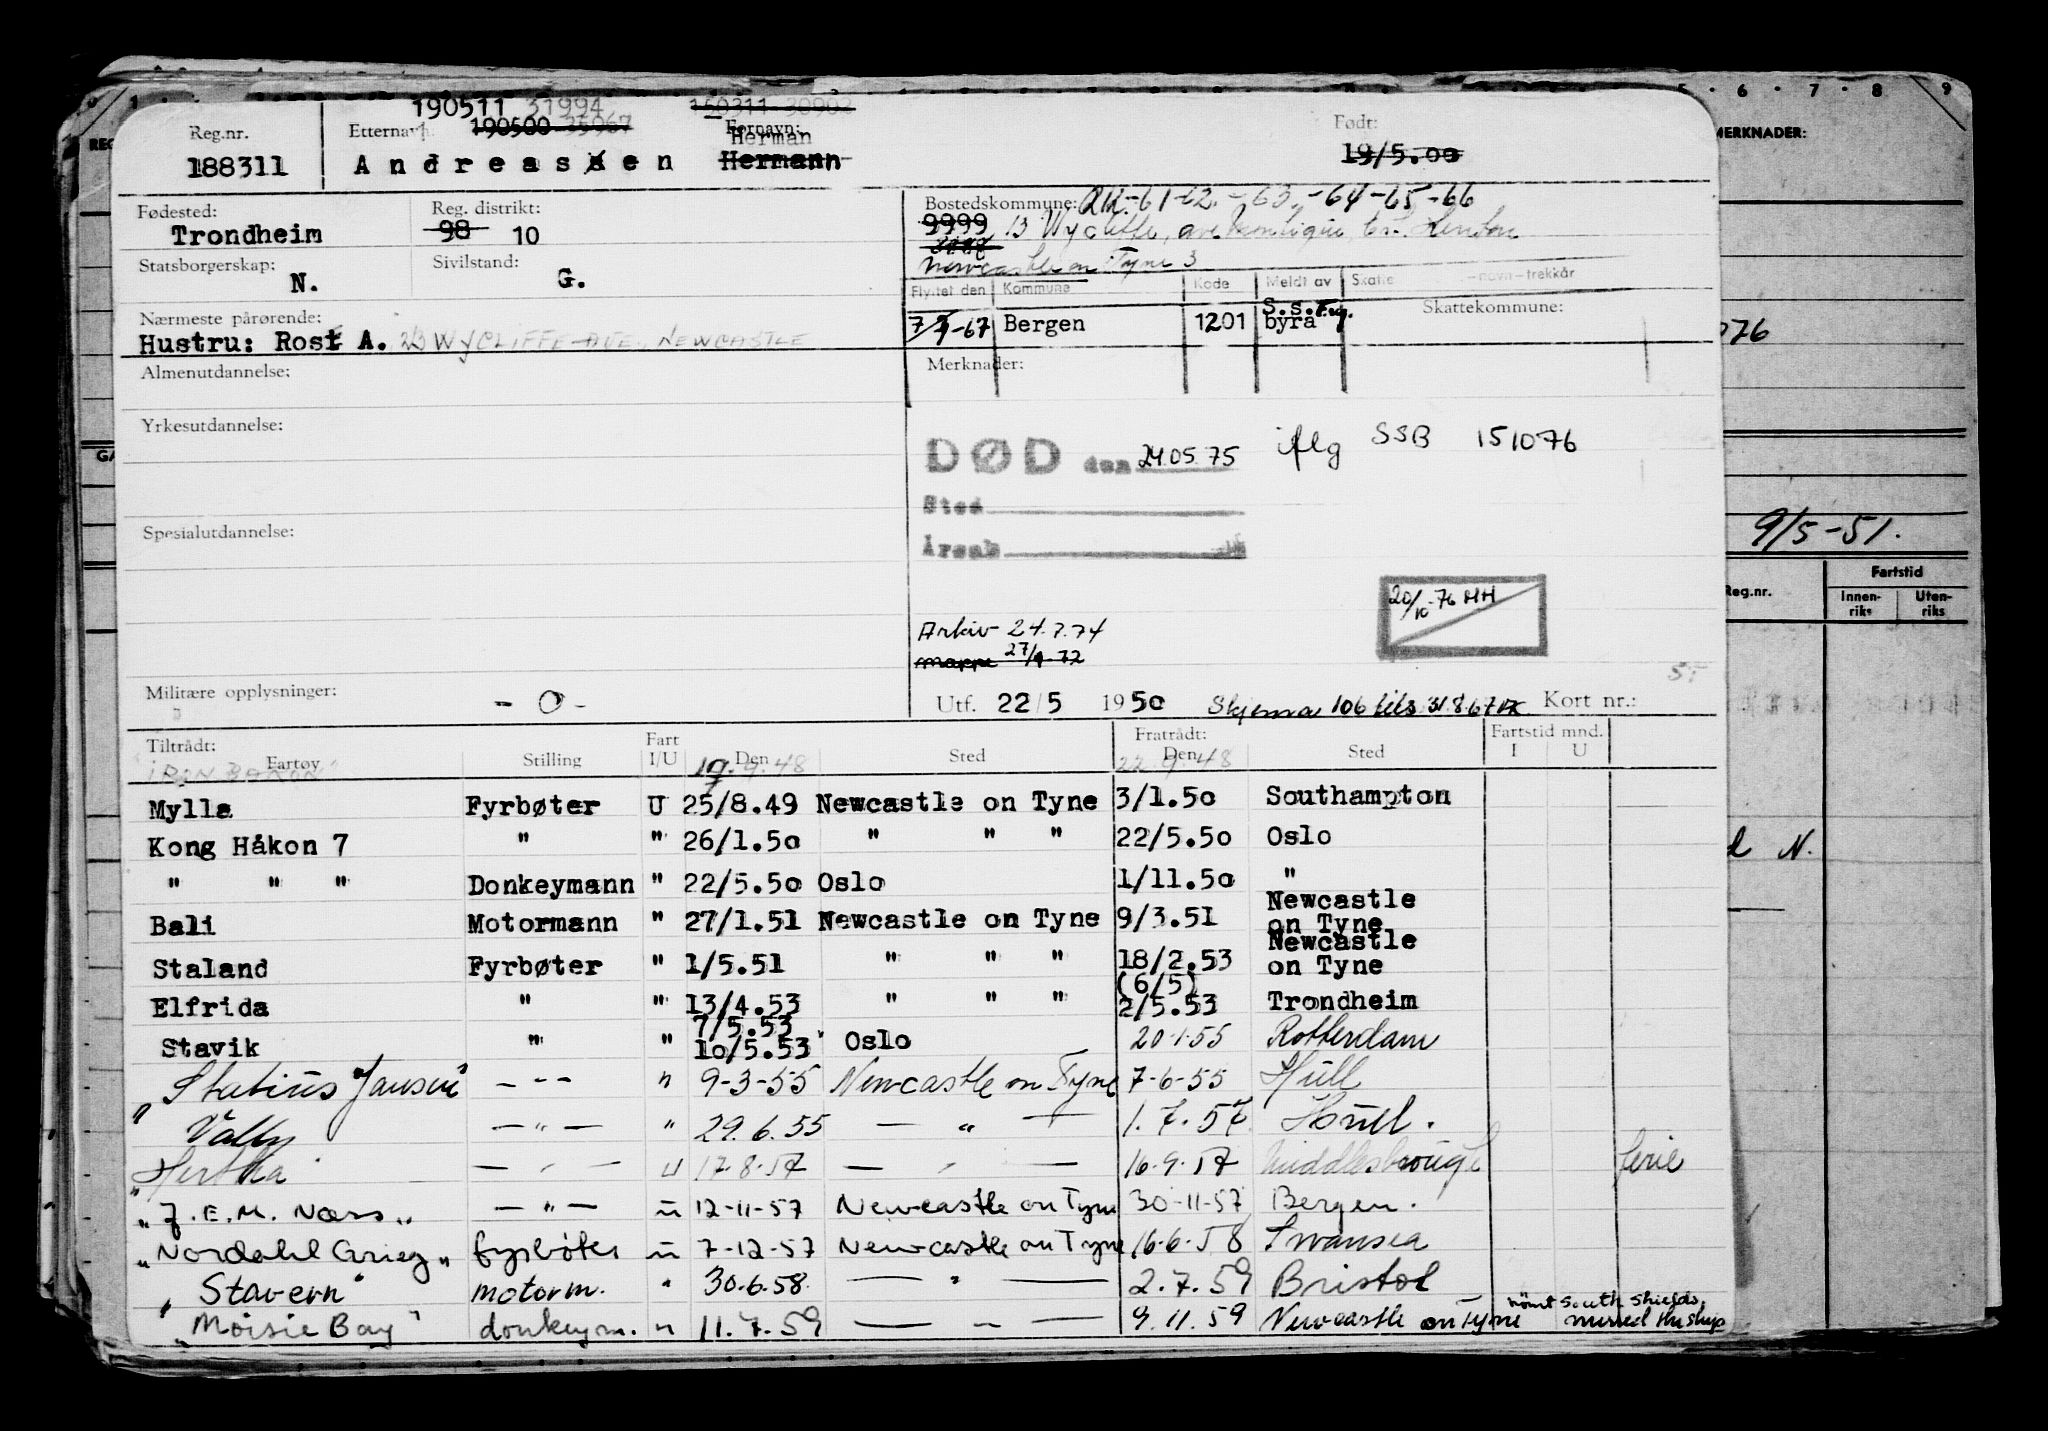 190511 31994 150311 30902
Reg.nr. Etternavn: 190500 35967 Fornavn: Født:
Herman
188311 Andreassen Hermann 19/5.00
Fødested: Reg. distrikt: Bostedskommune:
Trondheim 98 10 9999
Newcastle on Tyne 3
Statsborgerskap: Sivilstand:
N. G.
Flyttet den Kommune Kode Meldt av Skatte -navn-trekkår
Nærmeste pårørende: Skattekommune:
7/7-67 Bergen 1201 S.s.reg. byrå
Hustru: Rose A. 23 WYCLIFFE AVE. NEWCASTLE
Almenutdannelse: Merknader:
Yrkesutdannelse:
DØD den 24.05.75 iflg SSB 151076
Sted
Årsak
Spesialutdannelse:
20/10-76 HH
Arkiv 24.7.74
mappe 27/9-72
Militære opplysninger: - 0 -
Utf. 22/5 1950 Skjema 106 Kort nr.:
Tiltrådt: Fratrådt: Fartstid mnd.
Fartøy Stilling Fart I/U Den Sted Den Sted I U
"IRON BARON" 19.9.48 22.9.48
Mylla Fyrbøter U 25/8.49 Newcastle on Tyne 3/1.50 Southampton
Kong Håkon 7 " " 26/1.50 " " " 22/5.50 Oslo
" " " Donkeymann " 22/5.50 Oslo 1/11.50 "
Bali Motormann " 27/1.51 Newcastle on Tyne 9/3.51 Newcastle on Tyne
Staland Fyrbøter " 1/5.51 " " " 18/2.53 Newcastle on Tyne
Elfrida " " 13/4.53 " " " (6/5) 2/5.53 Trondheim
Stavik " " 7/5.53 10/5.53 Oslo 20-1-55 Rotterdam
"Statius Jansen" -"- " 9-3-55 Newcastle on Tyne 7-6-55 Hull
Vally -"- " 29.6.55 - " - 1.7.57 Hull.
"Hertha" -"- u 17-8-57 - " - 16-9-57 Middlesbrough ferie
"J.E.M. Næss" -"- u 12-11-57 Newcastle on Tyne 30-11-57 Bergen.
"Nordahl Grieg" fyrbøter u 7-12-57 Newcastle on Tyne 16-6-58 Swansea
"Stavern" motorm. " 30.6.58. - " - 2.7.59 Bristol
"Moisie Bay" donkeym. " 11.7.59 - " - 9.11.59 Newcastle on Tyne rømt South Shields. missed the ship
5 · 6 · 7 · 8 9
MERKNADER:
9/5-51.
Reg.nr. Fartstid
Innen-riks Uten-riks
N.